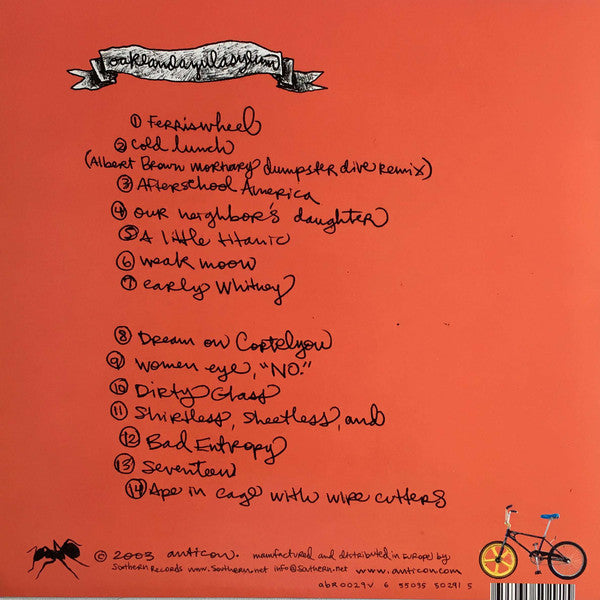 oaklandazulasylum
① Ferriswheel
② Cold lunch
(Albert Brown mortuary dumpster dive remix)
③ Afterschool America
④ our neighbor's daughter
⑤ A little titanic
⑥ weak moon
⑦ early Whitney
⑧ Dream on Cortelyou
⑨ women eye, "NO."
⑩ Dirty Glass
⑪ Shirtless, sheetless, and
⑫ Bad Entropy
⑬ Seventeen
⑭ Ape in cage with wire cutters
© 2003 anticon. manufactured and distributed in Europe by
Southern Records www.southern.net info@southern.net www.anticon.com
abR0029V 6 55035 50291 5